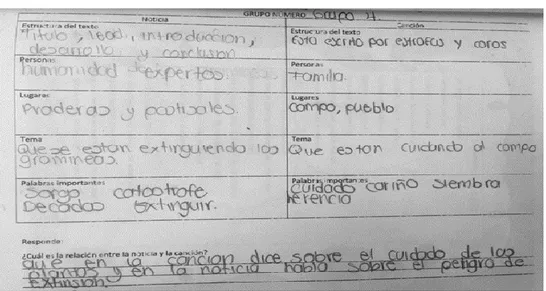 GRUPO NÚMERO Grupo 4.
Noticia
Canción
Estructura del texto
Titulo, lead, introducción,
desarrollo y conclusion
Estructura del texto
Esta escrito por estrofas y coros
Personas
humanidad expertos
Personas
Familia.
Lugares
Praderas y pastizales.
Lugares
Campo, pueblo
Tema
Que se estan extinguiendo las
gramineas.
Tema
Que estan cuidando al campo
Palabras importantes
Sorgo catastrofe
Decadas Extinguir.
Palabras importantes
Cuidado cariño siembra
Herencia
Responde:
¿Cuál es la relación entre la noticia y la canción?
Que en la cancion dice sobre el cuidado de las
plantas y en la noticia habla sobre el peligro de
extinsion.